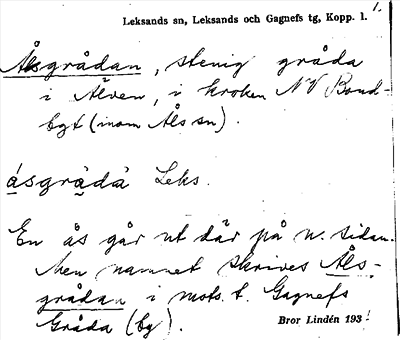 1.
Leksands sn, Leksands och Gagnefs tg, Kopp. l.
Ålsgrådan, stenig gråda
i Älven, i kroken NV Bond-
byt (inom Åls sn).
ásgrádá Leks.
En ås går ut där på n. sidan.
Men namnet skrives Åls-
grådan i mots. t. Gagnefs
Gråda (by).
Bror Lindén 193